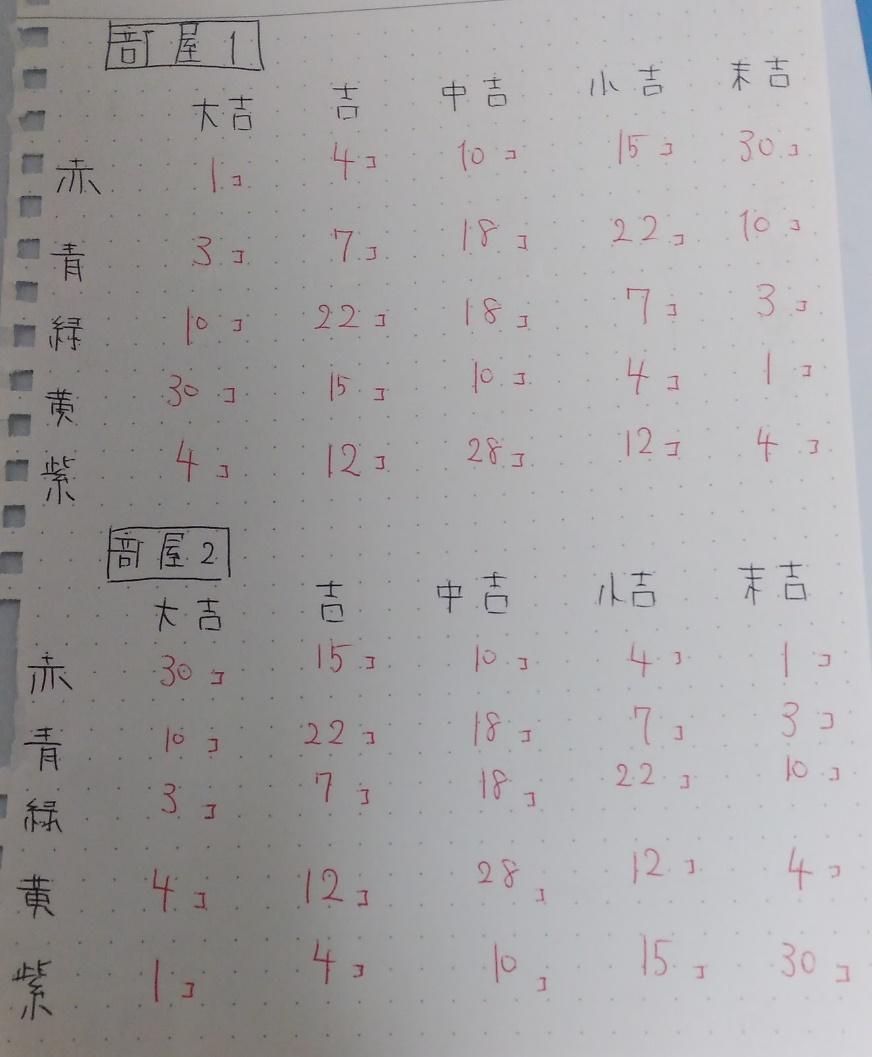 部屋1
大吉 吉 中吉 小吉 末吉
赤 1コ 4コ 10コ 15コ 30コ
青 3コ 7コ 18コ 22コ 10コ
緑 10コ 22コ 18コ 7コ 3コ
黄 30コ 15コ 10コ 4コ 1コ
紫 4コ 12コ 28コ 12コ 4コ
部屋2
大吉 吉 中吉 小吉 末吉
赤 30コ 15コ 10コ 4コ 1コ
青 10コ 22コ 18コ 7コ 3コ
緑 3コ 7コ 18コ 22コ 10コ
黄 4コ 12コ 28コ 12コ 4コ
紫 1コ 4コ 10コ 15コ 30コ